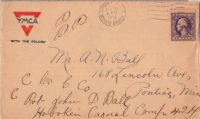 YMCA
WITH THE COLORS
Mr. A. N. Ball
Co E 160 Lincoln Ave,
Pontiac, Mich
Pvt. John D Ball
Hoboken Casual Comp 424